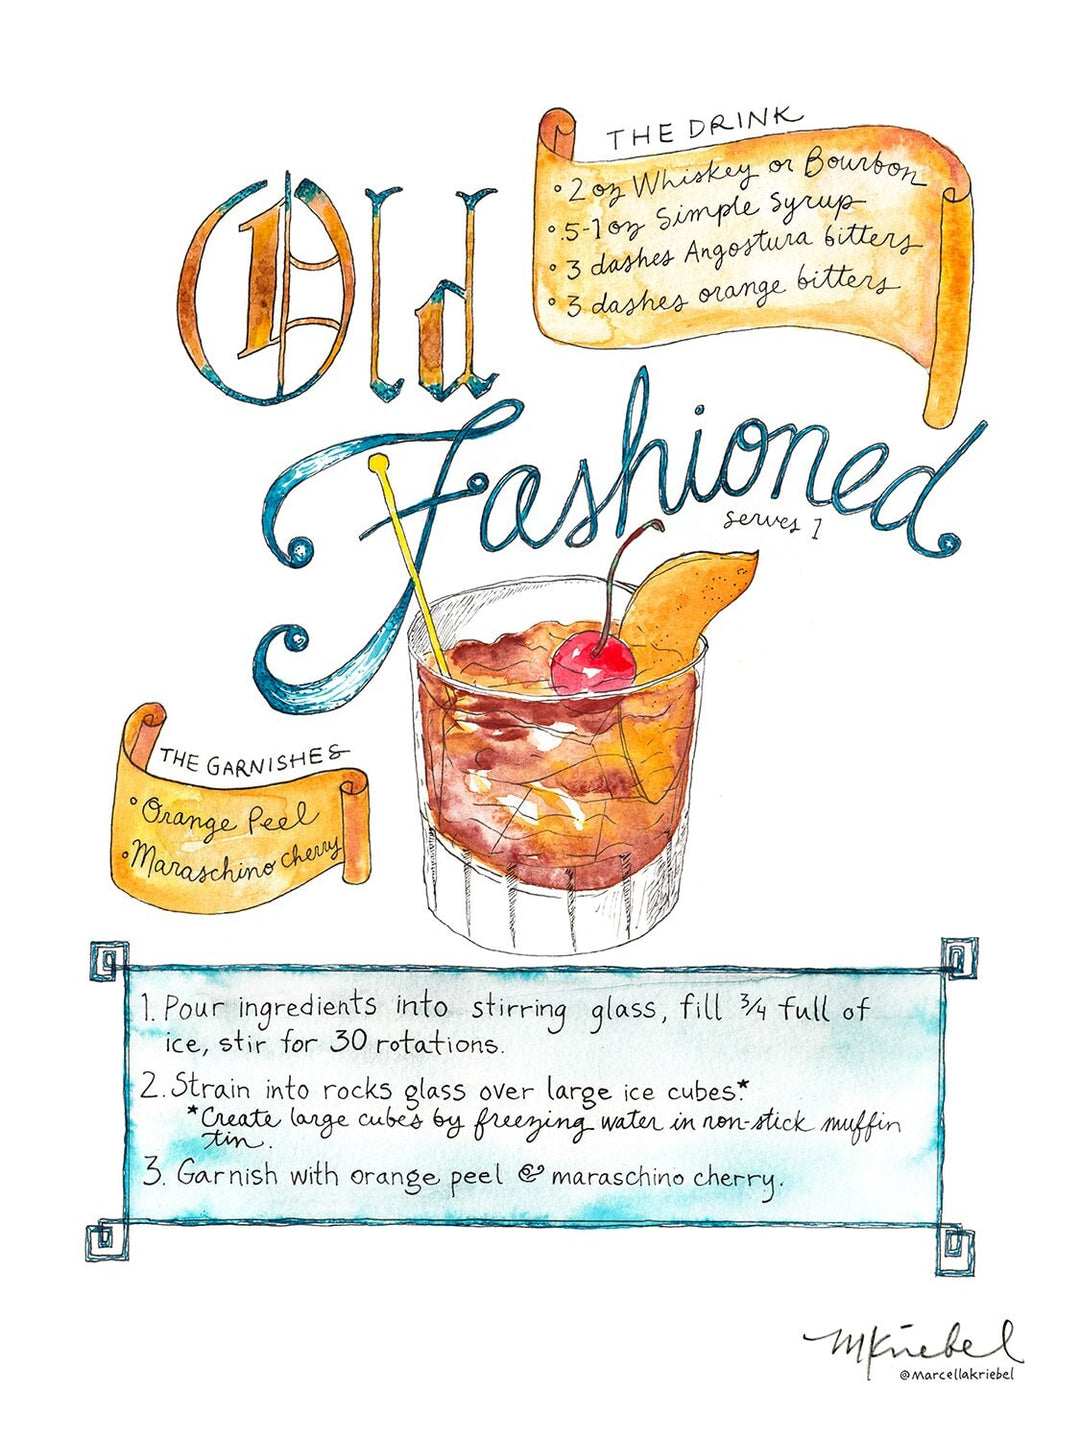 Old
Fashioned
serves 1
THE DRINK
• 2 oz Whiskey or Bourbon
• .5-1 oz Simple Syrup
• 3 dashes Angostura bitters
• 3 dashes orange bitters
THE GARNISHES
• Orange Peel
• Maraschino cherry
1. Pour ingredients into stirring glass, fill 3/4 full of
ice, stir for 30 rotations.
2. Strain into rocks glass over large ice cubes.*
*Create large cubes by freezing water in non-stick muffin
tin.
3. Garnish with orange peel & maraschino cherry.
MKriebel
@marcellakriebel